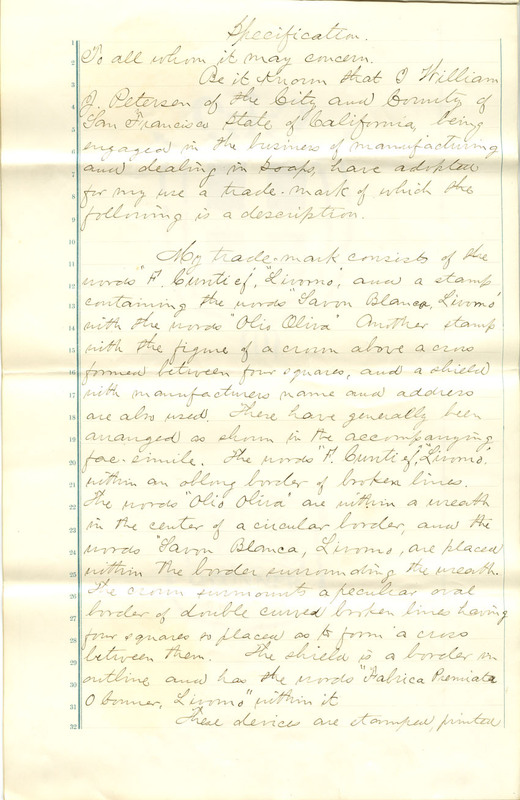 Specification.
To all whom it may concern.
Be it Known that I William
J. Petersen of the City and County of
San Francisco State of California, being
engaged in the business of manufacturing
and dealing in Soaps, have adopted
for my use a trade-mark of which the
following is a description.
My trade-mark consists of the
words "F. , "Livorno", and a stamp
containing the words "Savon Blanca, Livorno"
with the words "Olio Oliva" Another stamp
with the figure of a crown above a cross
formed between four squares, and a shield
with manufacturers name and address
are also used. These have generally been
arranged as shown in the accompanying
fac-simile. The words "F. , "Livorno".
within an oblong border of broken lines.
The words "Olio Oliva" are within a wreath
in the center of a circular border, and the
words "Savon Blanca, Livorno, are placed
within the border surrounding the wreath.
The crown surmounts a peculiar oval
border of double curved broken lines having
four squares so placed as to form a cross
between them. The shield is a border in
outline and has the words "Fabrica Premiata
Livorno" within it
These devices are stamped, printed